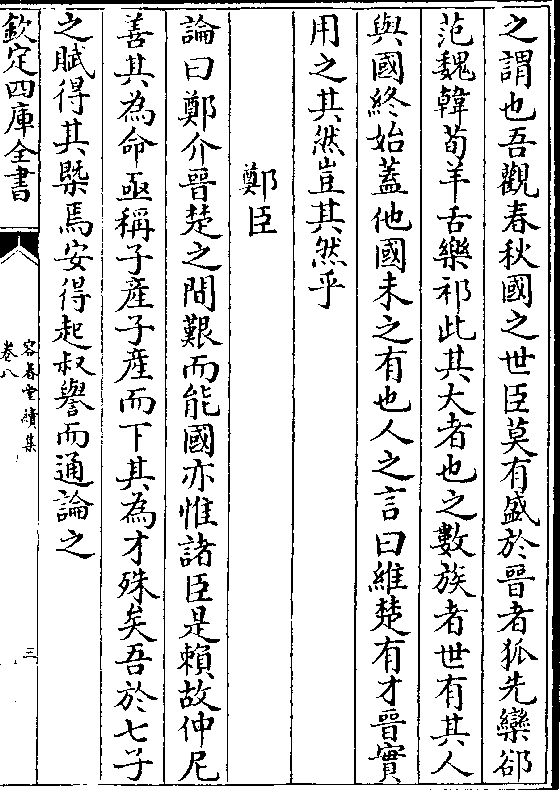 之謂也吾觀春秋國之世臣莫有盛於晉者狐先欒郤
范魏韓荀羊舌樂祁此其大者也之數族者世有其人
與國終始蓋他國未之有也人之言曰維楚有才晉實
用之其然豈其然乎
鄭臣
論曰鄭介晉楚之間艱而能國亦惟諸臣是賴故仲尼
善其為命亟稱子產子產而下其為才殊矣吾於七子
之賦得其槩焉安得起叔譽而通論之
欽定四庫全書
容春堂續集
卷八
三